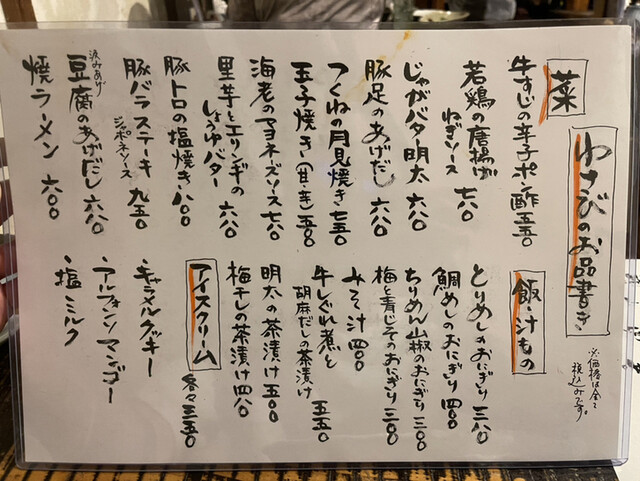 わさびのお品書き
※価格は全て
税込みです。
菜
牛すじの辛子ポン酢 五五〇
若鶏の唐揚げ
ねぎソース 七八〇
じゃがバター明太 六八〇
豚足のあげだし 六八〇
つくねの月見焼き 七五〇
玉子焼き(甘・辛) 五五〇
海老のマヨネーズソース 七八〇
里芋とエリンギの
しょうゆバター 六八〇
豚トロの塩焼き 八〇〇
豚バラステーキ 九五〇
ジャポネソース
汲みあげ
豆腐のあげだし 六八〇
焼ラーメン 六〇〇
飯・汁もの
とりめしのおにぎり 三八〇
鯛めしのおにぎり 四〇〇
ちりめん山椒のおにぎり 三〇〇
梅と青じそのおにぎり 三〇〇
みそ汁 四〇〇
牛しぐれ煮と
胡麻だしの茶漬け 五五〇
明太の茶漬け 五〇〇
梅干しの茶漬け 四八〇
アイスクリーム
各々 三五〇
・キャラメルクッキー
・アルフォンソマンゴー
・塩ミルク